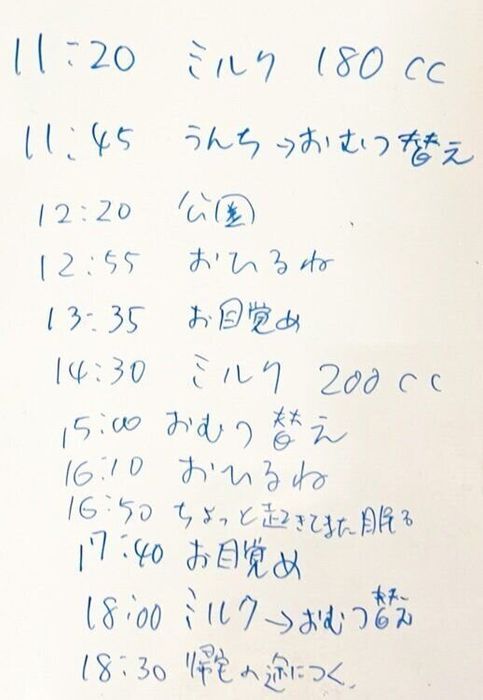 11:20 ミルク 180cc
11:45 うんち→おむつ替え
12:20 公園
12:55 おひるね
13:35 お目覚め
14:30 ミルク 200cc
15:00 おむつ替え
16:10 おひるね
16:50 ちょっと起きてまた眠る
17:40 お目覚め
18:00 ミルク→おむつ替え
18:30 帰宅の途につく。